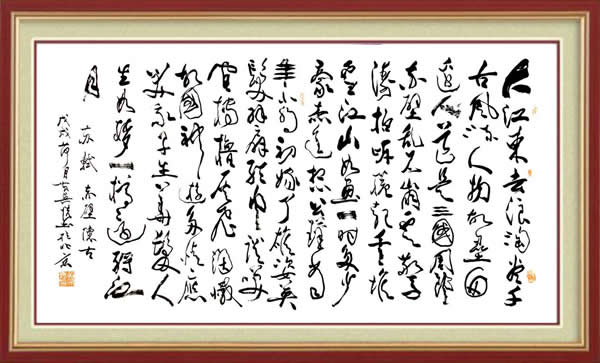 大江東去浪淘尽千
古風流人物故壘西
邊人道是三國周郎
赤壁乱石崩雲驚
濤拍岸捲起千堆
雪江山如画一時多少
豪杰遥想公瑾當
年小喬初嫁了雄姿英
發羽扇綸巾談笑
間檣櫓灰飛烟滅
故國神遊多情應
笑我早生華髮人
生如夢一樽還酹江
月
苏軾 赤壁懷古
戊戌荷月 於北京